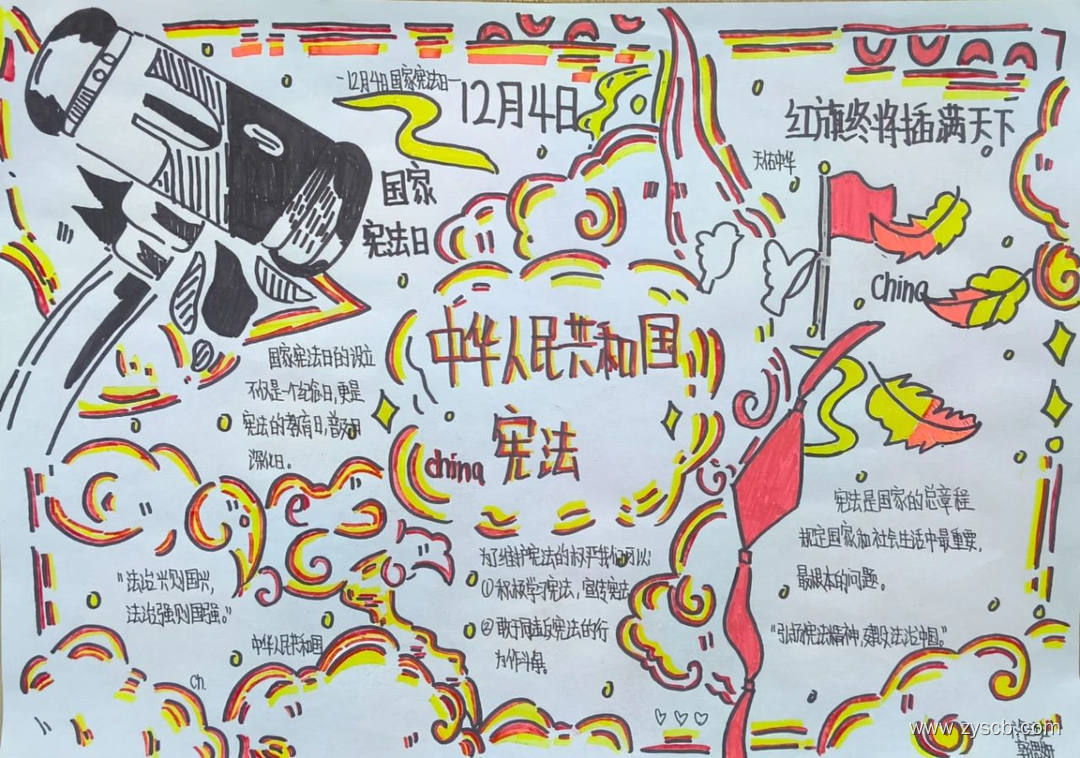 -12月4日国家宪法日-
12月4日
国家
宪法日
红旗终将插满天下
天佑中华
China
中华人民共和国
宪法
china
国家宪法日的设立
不仅是一个纪念日,更是
宪法的教育日,普及日
深化日。
"法治兴则国兴,
法治强则国强。"
中华人民共和国
Ch
为了维护宪法的权严我们可以:
①积极学习宪法,宣传宪法
②敢于同违反宪法的行
为作斗争。
宪法是国家的总章程
规定国家和社会生活中最重要,
最根本的问题。
"弘扬宪法精神,建设法治中国。"
www.zyscb.com